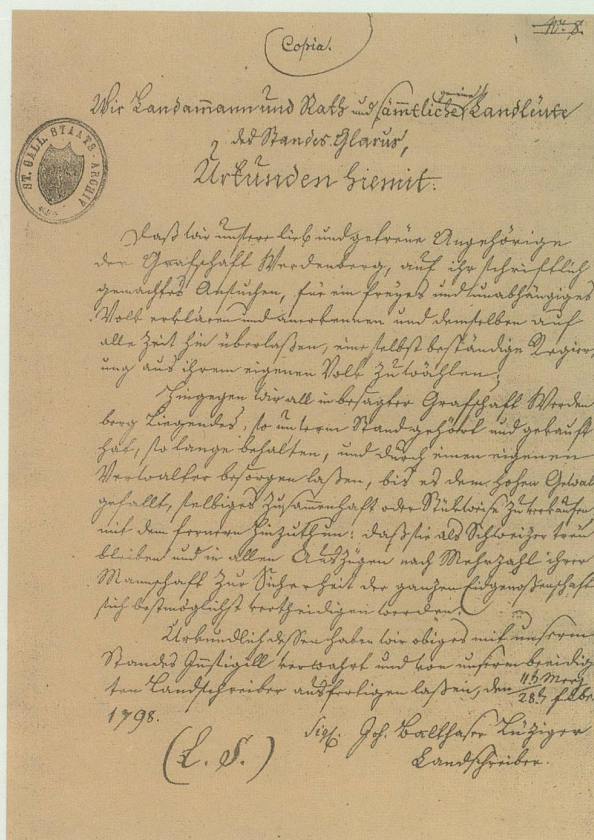 N: 8.
Copia.
Wir Landam̄ann und Rath und sām̄tliche gemeine Landleüte
des Standes Glarus,
Urkunden hiemit:
ST. GALL. STAATS-ARCHIV
Daß wir unsere lieb und getreüe Angehörige
der Grafschaft Werdenberg, auf ihr schriftlich
gemachtes Ansuchen, für ein freyes und unabhängiges
Volk erklären und anerkennen und demselben auf
alle Zeit hin überlaßen, eine selbst beständige Regier,
ung aus ihrem eigenen Volk zu wählen;
Hingegen wir all in besagter Grafschaft Werden
berg Liegendes, so unserm Stand gehört und gekauft
hat, so lange behalten, und durch einen eigenen
Verwalter besorgen laßen, bis es dem hohen Gewal
gefallt, selbiges zusam̄enhaft oder Stükweise zu verkaufen
mit dem fernern Hinzuthun: daß sie als Schweizer treü
bleiben und in allen Auszügen nach Mehrzahl ihrer
Mannschaft zur Sicherheit der ganzen Eidgenoßenschaft
sich bestmöglichst vertheidigen werden.
Urkundlich dessen haben wir obiges mit unserm
Standes Insigill verwahrt und von unserm beeidig
ten Landschreiber ausfertigen laßen, den 11t. Merz
28t. Febr
1798.
Sigt. Joh. Balthasar Lüziger
(L. S.)
Landschreiber.